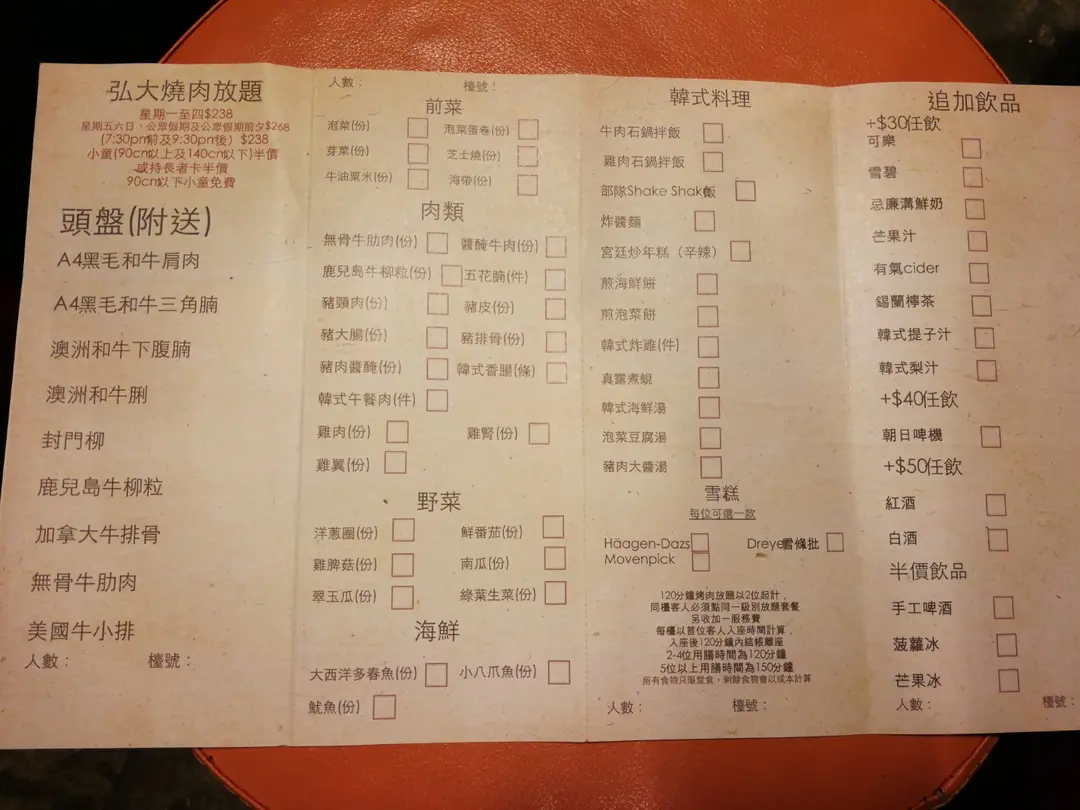 弘大燒肉放題
星期一至四$238
星期五六日、公眾假期及公眾假期前夕$268
(7:30pm前及9:30pn後）$238
小童(90cm以上及140cm以下)半價
或持長者卡半價
90cm以下小童免費
頭盤(附送)
A4黑毛和牛肩肉
A4黑毛和牛三角腩
澳洲和牛下腹腩
澳洲和牛脷
封門柳
鹿兒島牛柳粒
加拿大牛排骨
無骨牛肋肉
美國牛小排
人數：
檯號：
人數：
檯號：
前菜
泡菜(份)
泡菜蛋卷(份)
芽菜(份)
芝士燒(份)
牛油粟米(份)
海帶(份)
肉類
無骨牛肋肉(份)
醬醃牛肉(份)
鹿兒島牛柳粒(份)
五花腩(件)
豬頸肉(份)
豬皮(份)
豬大腸(份)
豬排骨(份)
豬肉醬醃(份)
韓式香腸(條)
韓式午餐肉(件)
雞肉(份)
雞腎(份)
雞翼(份)
野菜
洋蔥圈(份)
鮮番茄(份)
雞脾菇(份)
南瓜(份)
翠玉瓜(份)
綠葉生菜(份)
海鮮
大西洋多春魚(份)
小八爪魚(份)
魷魚(份)
韓式料理
牛肉石鍋拌飯
雞肉石鍋拌飯
部隊Shake Shake飯
炸醬麵
宮廷炒年糕（辛辣）
煎海鮮餅
煎泡菜餅
韓式炸雞(件)
真露煮蜆
韓式海鮮湯
泡菜豆腐湯
豬肉大醬湯
雪糕
每位可選一款
Häagen-Dazs
Dreyer雪條批
Movenpick
120分鐘烤肉放題以2位起計，
同檯客人必須點同一級別放題套餐
另收加一服務費
每檯以首位客人入座時間計算，
入座後120分鐘內結帳離座
2-4位用膳時間為120分鐘
5位以上用膳時間為150分鐘
所有食物只限堂食，剩餘食物會以成本計算
人數：
檯號：
追加飲品
+$30任飲
可樂
雪碧
忌廉溝鮮奶
芒果汁
有氣cider
錫蘭檸茶
韓式提子汁
韓式梨汁
+$40任飲
朝日啤機
+$50任飲
紅酒
白酒
半價飲品
手工啤酒
菠蘿冰
芒果冰
人數：
檯號：